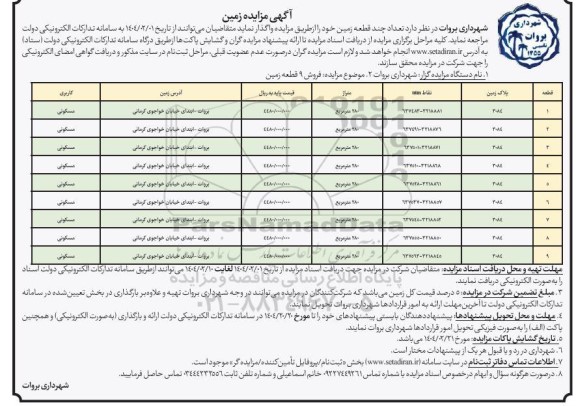 آگهی مزایده زمین
شهرداری بروات در نظر دارد تعداد چند قطعه زمین خود را ازطریق مزایده واگذار نماید متقاضیان می‌توانند از تاریخ ۱۴۰۴/۰۲/۰۱ به سامانه تدارکات الکترونیکی دولت
مراجعه نماید. کلیه مراحل برگزاری مزایده از دریافت اسناد مزایده تا ارائه پیشنهاد مزایده گران و گشایش پاکت‌ها ازطریق درگاه سامانه تدارکات الکترونیکی دولت (ستاد)
به آدرس www.setadiran.ir انجام خواهد شد و لازم است مزایده گران درصورت عدم عضویت قبلی، مراحل ثبت‌نام در سایت مذکور و دریافت گواهی امضای الکترونیکی
را جهت شرکت در مزایده محقق سازند.
۱. نام دستگاه مزایده گزار: شهرداری بروات ۲. موضوع مزایده: فروش ۹ قطعه زمین
شهرداری بروات
قطعه پلاک زمین نقاط utm متراژ قیمت پایه به ریال آدرس زمین کاربری
۱ ۳۰۸۴ ۲۸۰ مترمربع ۴٬۴۸۰٬۰۰۰٬۰۰۰ بروات -ابتدای خیابان خواجوی کرمانی مسکونی
۲ ۳۰۸۴ ۲۸۰ مترمربع ۴٬۴۸۰٬۰۰۰٬۰۰۰ بروات -ابتدای خیابان خواجوی کرمانی مسکونی
۳ ۳۰۸۴ ۲۸۰ مترمربع ۴٬۴۸۰٬۰۰۰٬۰۰۰ بروات -ابتدای خیابان خواجوی کرمانی مسکونی
۴ ۳۰۸۴ ۲۸۰ مترمربع ۴٬۴۸۰٬۰۰۰٬۰۰۰ بروات -ابتدای خیابان خواجوی کرمانی مسکونی
۵ ۳۰۸۴ ۲۸۰ مترمربع ۴٬۴۸۰٬۰۰۰٬۰۰۰ بروات -ابتدای خیابان خواجوی کرمانی مسکونی
۶ ۳۰۸۴ ۲۸۰ مترمربع ۴٬۴۸۰٬۰۰۰٬۰۰۰ بروات -ابتدای خیابان خواجوی کرمانی مسکونی
۷ ۳۰۸۴ ۲۸۰ مترمربع ۴٬۴۸۰٬۰۰۰٬۰۰۰ بروات -ابتدای خیابان خواجوی کرمانی مسکونی
۸ ۳۰۸۴ ۲۸۰ مترمربع ۴٬۴۸۰٬۰۰۰٬۰۰۰ بروات -ابتدای خیابان خواجوی کرمانی مسکونی
۹ ۳۰۸۴ ۲۸۰ مترمربع ۴٬۴۸۰٬۰۰۰٬۰۰۰ بروات -ابتدای خیابان خواجوی کرمانی مسکونی
ParsNamadData
مهلت تهیه و محل دریافت اسناد مزایده: متقاضیان شرکت در مزایده جهت دریافت اسناد مزایده از تاریخ ۱۴۰۴/۰۲/۰۱ لغایت ۱۴۰۴/۰۲/۱۰ می توانند ازطریق سامانه تدارکات الکترونیکی دولت اسناد
را به‌صورت الکترونیکی دریافت نمایند.
۳. مبلغ تضمین شرکت در مزایده: ۵ درصد قیمت کل زمین می‌باشد که شرکت‌کنندگان در مزایده می‌توانند در وجه شهرداری بروات تهیه و علاوه‌بر بارگذاری در بخش تعیین‌شده در سامانه
تدارکات الکترونیکی دولت تا آخرین مهلت ارائه به امور قراردادها شهرداری بروات تحویل نمایند.
۴. مهلت و محل تحویل پیشنهادها: پیشنهاددهندگان بایستی پیشنهادهای خود را تا مورخ ۱۴۰۴/۰۲/۲۰ در سامانه تدارکات الکترونیکی دولت ارائه و بارگذاری (به‌صورت الکترونیکی) و همچنین
پاکت (الف) را به‌صورت فیزیکی تحویل امور قراردادها شهرداری بروات نمایند.
۵. تاریخ گشایش پاکات مزایده: مورخ ۱۴۰۴/۰۲/۲۱ می‌باشد.
۶. شهرداری در رد و یا قبول هر یک از پیشنهادات مختار است.
۷. اطلاعات تماس دفاتر ثبت‌نام در سایت سامانه (www.setadiran.ir) بخش «ثبت‌نام/پروفایل تأمین‌کننده/مزایده‌گر» موجود است.
۸. درصورت هرگونه سؤال و ابهام درخصوص اسناد مزایده با شماره تماس ۰۹۲۲۷۴۴۹۲۶۱ خانم اسماعیلی و شماره تلفن ثابت ۰۳۴۴۴۲۳۲۵۵۶ تماس حاصل فرمایید.
شهرداری بروات